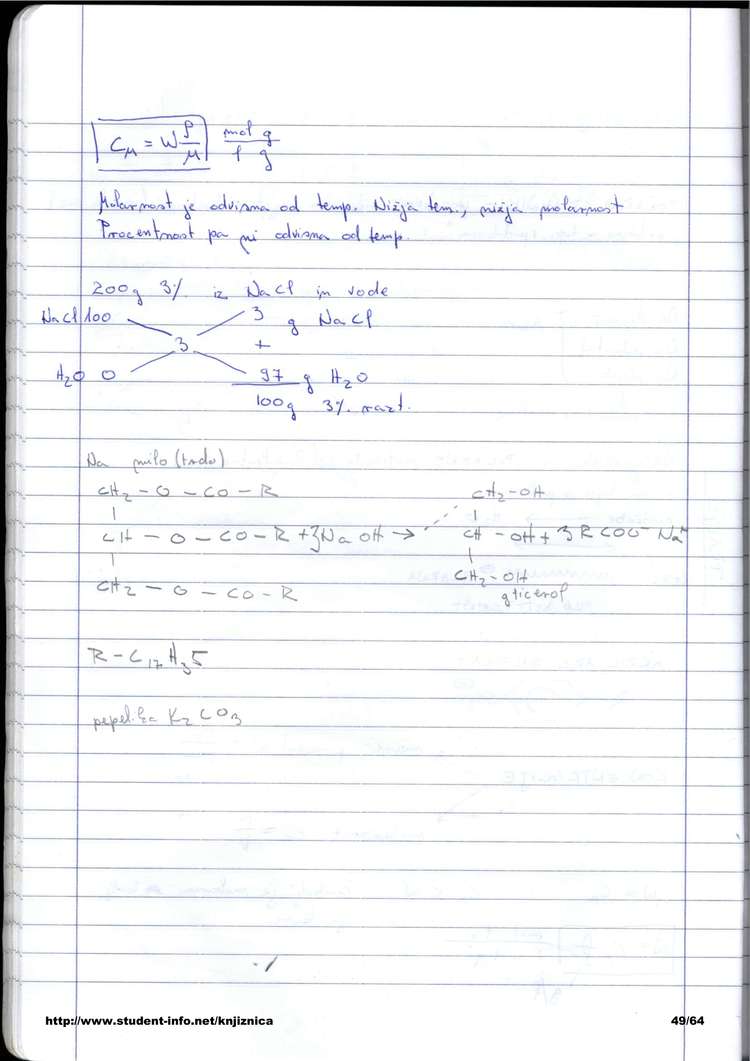 C_M = W ρ/M mol g / l g
Molarnost je odvisna od temp. Nižja tem., nižja molarnost
Procentnost pa ni odvisna od temp.
200g 3% iz NaCl in vode
NaCl 100 3 g NaCl
3 +
H₂O 0 97 g H₂O
100g 3% razt.
Na milo (trdo)
CH₂ - O - CO - R CH₂-OH
| |
CH - O - CO - R + 3NaOH → CH - OH + 3RCOO⁻Na⁺
| |
CH₂ - O - CO - R CH₂-OH
glicerol
R - C₁₇H₃5
K₂CO₃
http://www.student-info.net/knjiznica 49/64